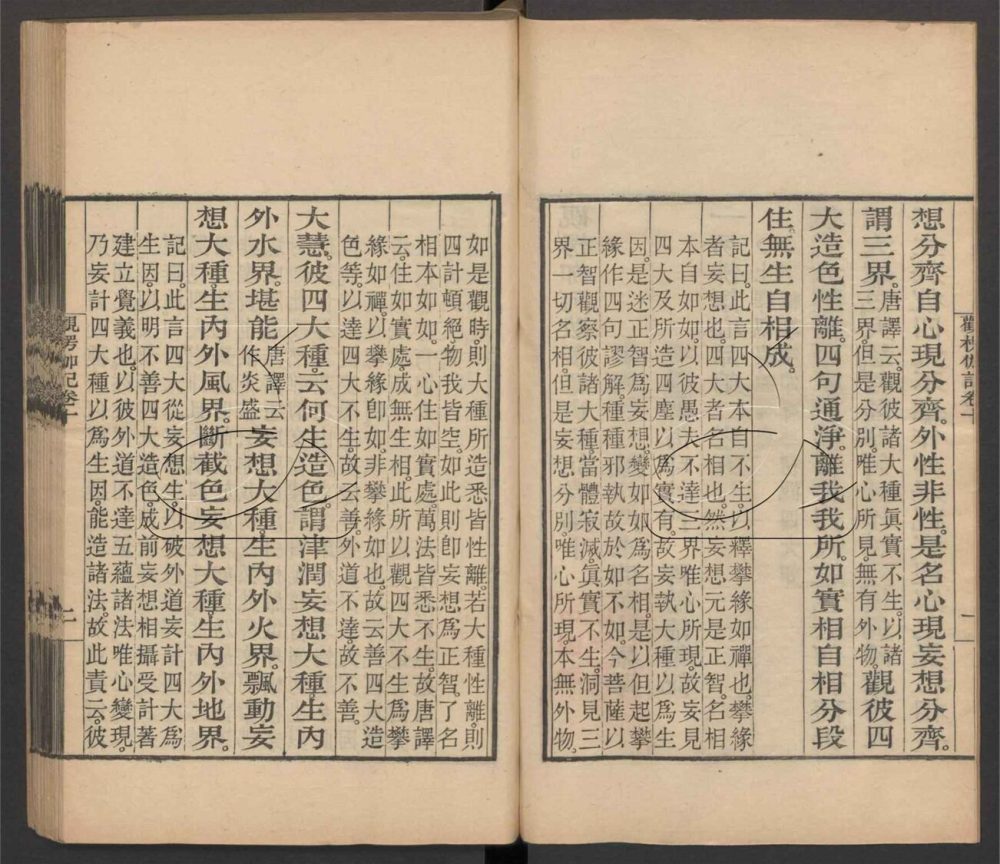 想分齊自心現分齊。外性非性。是名心現妄想分齊。
謂三界。唐譯云。觀彼諸大種眞實不生。以諸三界。但是分別。唯心所見。無有外物。觀彼四
大造色性離。四句通淨。離我我所。如實相自相分段
住。無生自相成。
記曰。此言四大本自不生。以釋攀緣如禪也。攀緣
者妄想也。四大者名相也。然妄想元是正智。名相
本自如如。以彼愚夫不達三界唯心所現。故妄見
四大及所造四塵以爲實有。故妄執大種以爲生
因。是迷正智爲妄想。變如如爲名相。是以但起攀
緣作四句謬解。種種邪執。故於如不如。今菩薩以
正智觀察彼諸大種。當體寂滅。眞實不生。洞見三
界一切名相。但是妄想分別。唯心所現。本無外物。
觀楞伽記卷一
一
如是觀時。則大種所造悉皆性離。若大種性離。則
四計頓絕。物我皆空。如此則卽妄想爲正智。了名
相本如如。一心住如實處。萬法皆悉不生。故唐譯
云。住如實處。成無生相。此所以觀四大不生爲攀
緣如禪。以攀緣卽如。非攀緣如也。故云善四大造
色等。以達四大不生。故云善。外道不達。故不善。
大慧。彼四大種。云何生造色。謂津潤妄想大種生內
外水界。堪能唐譯云作炎盛妄想大種。生內外火界。飄動妄
想大種。生內外風界。斷截色妄想大種生內外地界。
記曰。此言四大從妄想生。以破外道妄計四大爲
生因。以明不善四大造色。成前妄想相攝受計著
建立覺義也。以彼外道不達五蘊諸法唯心變現。
乃妄計四大種以爲生因。能造諸法。故此責云。彼
觀楞伽記卷一
二